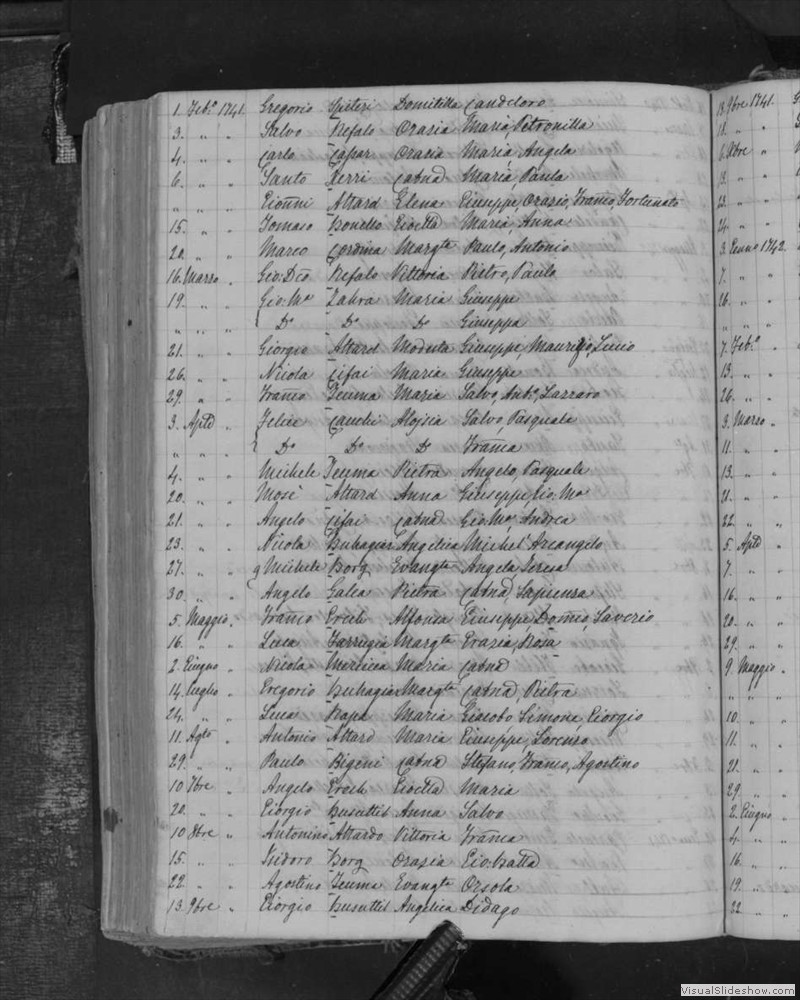 1. Feb.º 1741. Gregorio Spiteri Domitilla Candeloro
3. " " Salvo Refalo Orasia Maria, Petronilla
4. " " Carlo Caspar Orasia Maria Angela
6. " " Santo Xerri Catnd Maria, Paula
" " " Gionni Attard Elena Giuseppe, Orazio, Franco, Fortunato
15. " " Tomaso Bonello Gioetta Maria, Anna
20. " " Marco Margta Paulo, Antonio
16. Marzo " Gio: Dco Refalo Vittoria Pietro, Paulo
19. " " Gio: Mª Zahra Maria Giuseppe
" " " { Dº Dº Dº Giuseppa
21. " " Giorgio Attard Modesta Giuseppe, Maurizio, Lucio
26. " " Nicola Cifai Maria Giuseppe
29. " " Franco Teuma Maria Salvo, Antº, Lazzaro
3. Aple " Felice Cauchi Aloisia Salvo, Pasquale
" " " { Dº Dº Dº Franca
4. " " Michele Teuma Pietra Angelo, Pasquale
20. " " Mosè Attard Anna Giuseppe, Gio: Mª
21. " " Angelo Cifai Catnd Gio: Mª, Andrea
23. " " Nicola Buhagiar Angelica Michel' Arcangelo
27. " " Michele Borg Evangta Angela Teresa
30. " " Angelo Galea Pietra Catnd Sapienza
5. Maggio " Franco Grech Alfonsa Giuseppe, Domco, Saverio
16. " " Luca Farrugia Margta Grazia, Rosa
2. Giugno " Nicola Mercieca Maria Catnd
14. Luglio " Gregorio Buhagiar Margta Catnd Pietra
24. " " Luca Rapa Maria Giacobo Simone, Giorgio
11. Agto " Antonio Attard Maria Giuseppe, Lorenzo
29. " " Paulo Bigeni Catnd Stefano, Franco, Agostino
10 7bre " Angelo Grech Gioetta Maria
20. " " Giorgio Busuttil Anna Salvo
10 8bre " Antonino Attardo Vittoria Franca
15. " " Isidoro Borg Orasia Gio: Batta
22. " " Agostino Teuma Evangta Orsola
13. 9bre " Giorgio Busuttil Angelica Didago
13. 9bre 1741.
18. " "
6. Xbre "
13. " "
23. " "
24. " "
3. Genno 1742.
7. " "
26. " "
" " "
7. Feb.º "
13. " "
26. " "
3. Marzo "
11. " "
13. " "
21. " "
22. " "
5. Aple "
7. " "
16. " "
20. " "
29. " "
9. Maggio "
" " "
10. " "
11. " "
21. " "
29. " "
2. Giugno "
4. " "
16. " "
19. " "
22. " "
VisualSlideshow.com